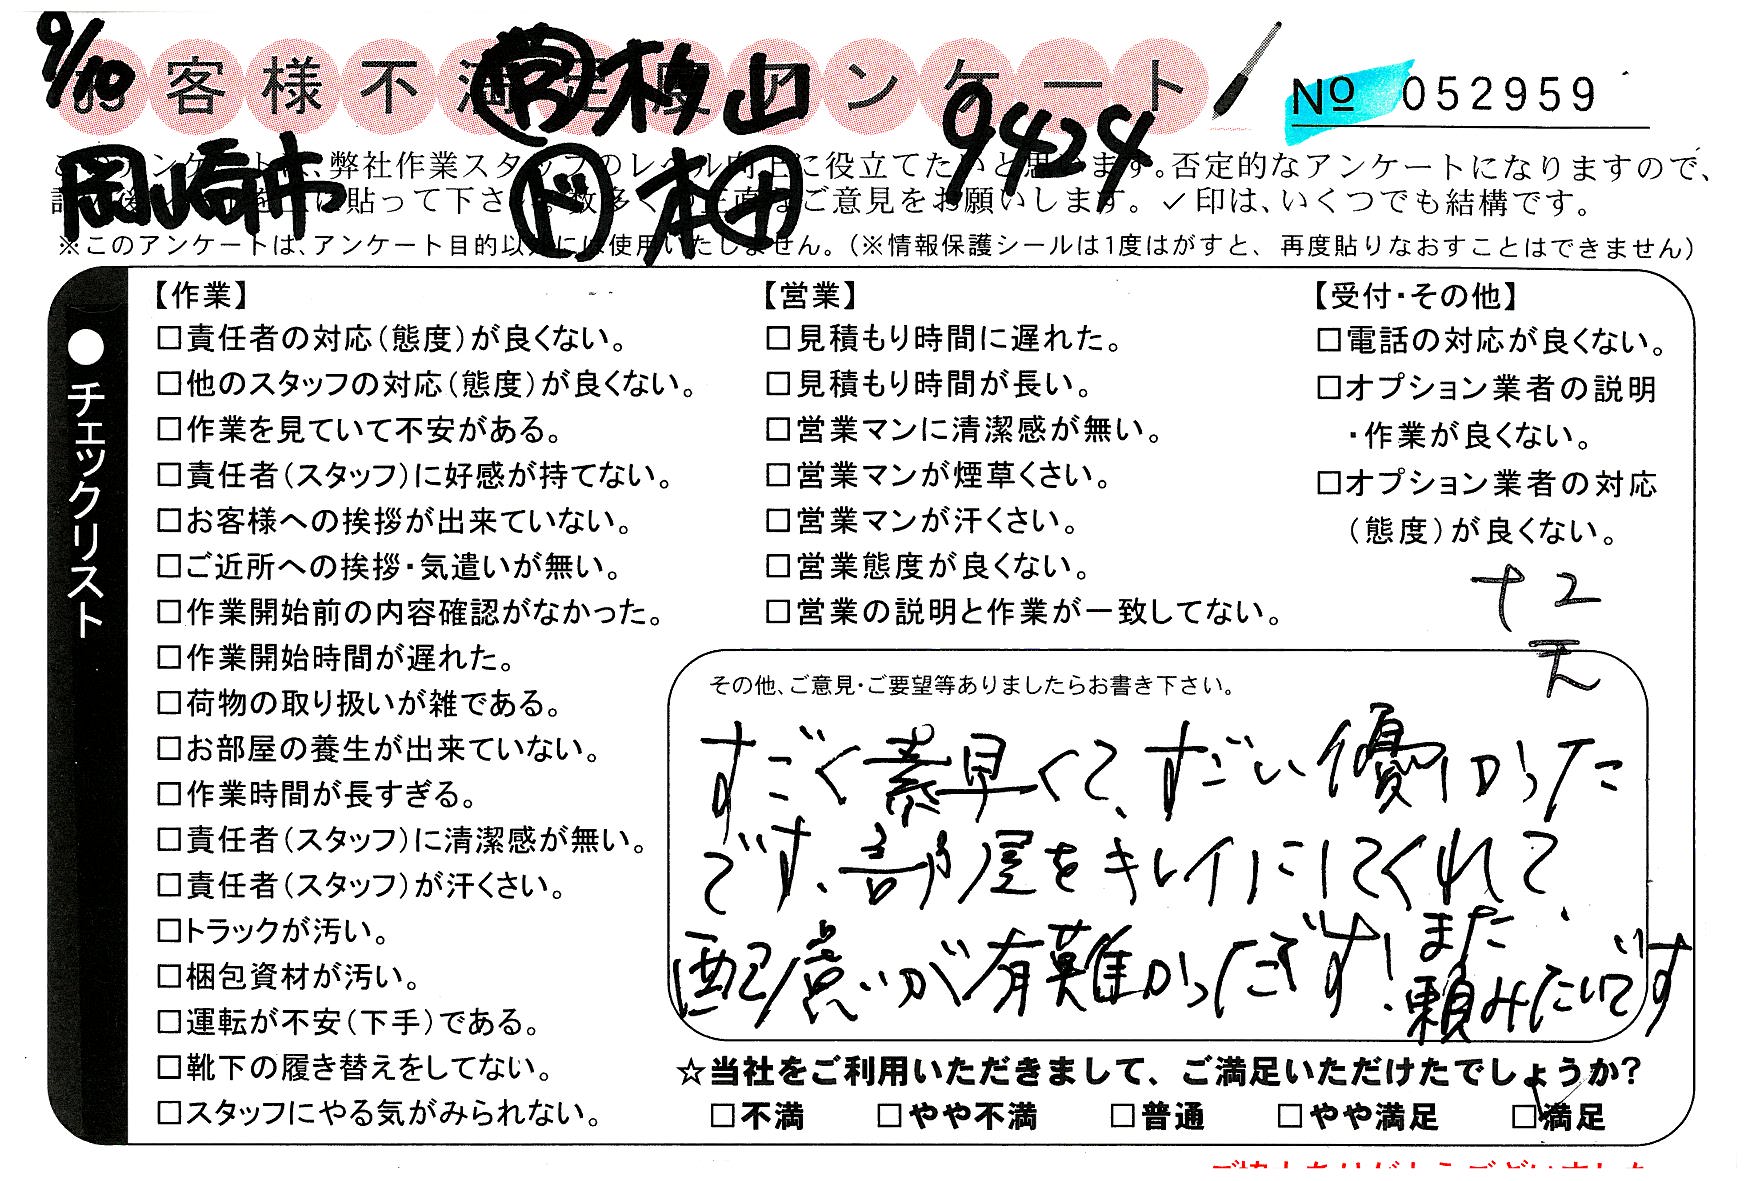 9/10
お客様不満足度アンケート
営 杉山
No 052959
9424
岡崎市
ド 本田
このアンケートは、弊社作業スタッフのレベル向上に役立てたいと思います。否定的なアンケートになりますので、
貼って下さい。数多くの正直なご意見をお願いします。✓印は、いくつでも結構です。
※このアンケートは、アンケート目的以外には使用いたしません。(※情報保護シールは1度はがすと、再度貼りなおすことはできません)
●チェックリスト
【作業】
□責任者の対応(態度)が良くない。
□他のスタッフの対応(態度)が良くない。
□作業を見ていて不安がある。
□責任者(スタッフ)に好感が持てない。
□お客様への挨拶が出来ていない。
□ご近所への挨拶・気遣いが無い。
□作業開始前の内容確認がなかった。
□作業開始時間が遅れた。
□荷物の取り扱いが雑である。
□お部屋の養生が出来ていない。
□作業時間が長すぎる。
□責任者(スタッフ)に清潔感が無い。
□責任者(スタッフ)が汗くさい。
□トラックが汚い。
□梱包資材が汚い。
□運転が不安(下手)である。
□靴下の履き替えをしてない。
□スタッフにやる気がみられない。
【営業】
□見積もり時間に遅れた。
□見積もり時間が長い。
□営業マンに清潔感が無い。
□営業マンが煙草くさい。
□営業マンが汗くさい。
□営業態度が良くない。
□営業の説明と作業が一致してない。
【受付・その他】
□電話の対応が良くない。
□オプション業者の説明
・作業が良くない。
□オプション業者の対応
(態度)が良くない。
+2
その他、ご意見・ご要望等ありましたらお書き下さい。
すごく素早くて、すごい優しかった
です、部屋をキレイにしてくれて、
配慮いが有難かったです! また
頼みたいです
☆当社をご利用いただきまして、ご満足いただけたでしょうか?
□不満 □やや不満 □普通 □やや満足 □満足
ご協力ありがとうございました